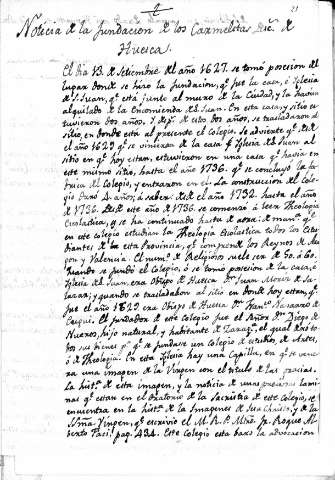 2
21
Noticia de la fundacion de los Carmelitas Desc.s de
Huesca.
El dia 13 de Setiembre del año 1627. se tomó posesion del
lugar donde se hizo la fundacion, q.e fue la casa, é Iglesia
de S. Juan, q.e está junto al muro de la Ciudad, y la havia
alquilado de la Encomienda de S. Juan. En esta casa, y sitio es-
tuvieron dos años, y desp.s de esto dos años, se trasladaron al
sitio, en donde está al presente el Colegio. Se advierte q.e desde
el año 1629 q.e se vinieron de la casa é Iglesia de S. Juan al
sitio en q.e hoy estam, estuvieron en una casa q.e havia en
este mismo sitio, hasta el año 1736. q.e se concluyó la fa-
brica del Colegio, y entraron en el. La construccion del Cole-
gio duró 4 años; á saber: desde el año 1732. hasta el año
de 1736. Desde este año de 1736. se comenzó á leer Theologia
Escolastica, y se ha continuado hasta de aora: de man.a q.e
en este colegio estudian la Theologia Escolastica todos los Estu-
diantes de la esta Provincia, q.e comprende los Reynos de Ara-
gon y Valencia. El num.o de Religiosos suele ser de 50. á 60.
Quando se fundó el Colegio, ó se tomo posesion de la casa, é
Iglesia de S. Juan, era Obispo de Huesca D.n Juan Moriz de Sa-
lazar; y quando se trasladaron al sitio en donde hoy estan, q.e
fue el año 1629 era Obispo de Huesca D.n Fran.co Navarro de
Eugui. El fundador de este Colegio fue el Señor D.n Diego de
Nueros, hijo natural, y habitante de Zarag.a, el qual dio to-
dos sus bienes p.a q.e se fundase un Colegio de estudios, de Artes,
ó de Theologia. En esta Iglesia hay una Capilla, en q.e se vene-
ra una imagen de la Virgen con el titulo de las Gracias.
La hist.a de esta imagen, y la noticia de unas preciosas lami-
nas q.e estan en el Oratorio de la Sacristia de este Colegio, se
encuentra en la hist.a de la Imagenes de Jesu Christo, y de la
SSma. Virgen, q.e escrivió el M. R. P. Mtro. Fr. Roque Al-
berto Faci, pag. 434. Este Colegio esta baxo la advocacion